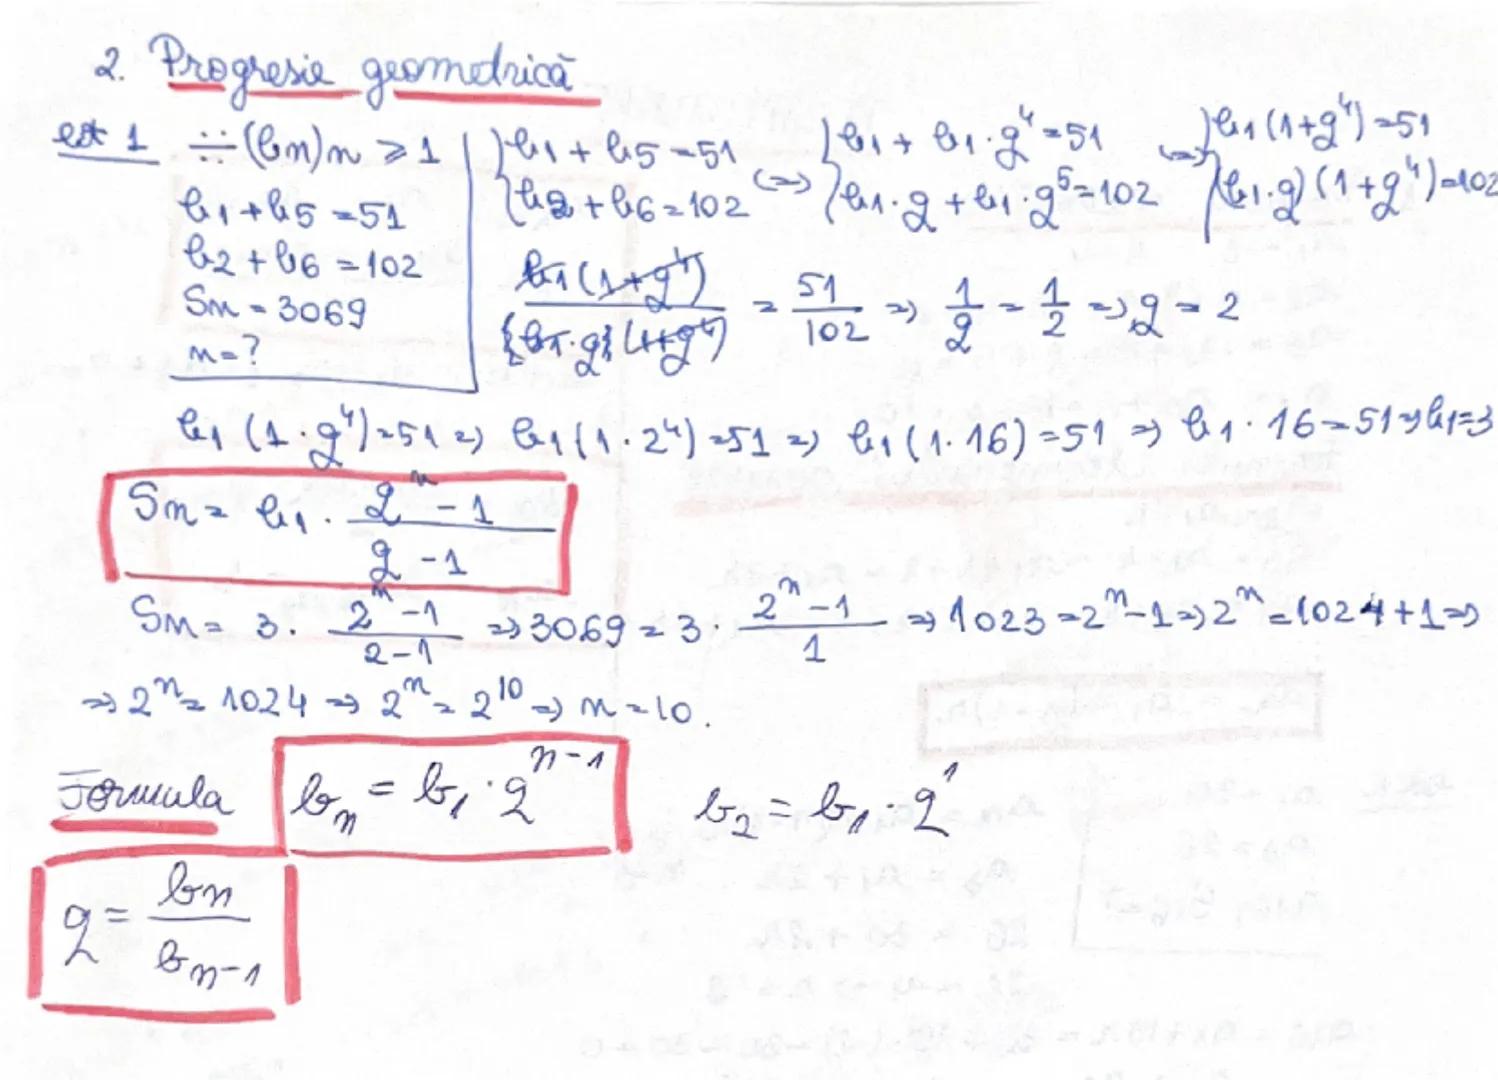 2. Progresie geometrică
ex 1 ÷(bn)n ≥ 1
b1 + b5 = 51
b2 + b6 = 102
Sn = 3069
n = ?
{b1 + b5 = 51
{b2 + b6 = 102
<=> {b1 + b1 · q^4 = 51
{b1 · q + b1 · q^5 = 102
<=> {b1 (1 + q^4) = 51
{(b1 · q) (1 + q^4) = 102
b1 (1 + q^4) / {b1 · q} (1 + q^4) = 51/102 => 1/q = 1/2 => q = 2
b1 (1 · q^4) = 51 => b1 (1 · 2^4) = 51 => b1 (1 · 16) = 51 => b1 · 16 = 51 => b1 = 3
Sn = b1 · (q^n - 1)/(q - 1)
Sn = 3 · (2^n - 1)/(2 - 1) => 3069 = 3 · (2^n - 1)/1 => 1023 = 2^n - 1 => 2^n = 1024 + 1 =>
=> 2^n = 1024 => 2^n = 2^10 => n = 10.
Formula bn = b1 · q^(n-1) b2 = b1 · q^1
q = bn/bn-1